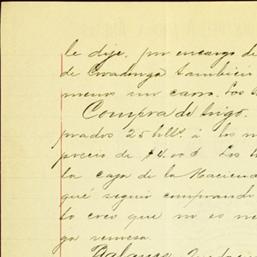 le dije, por encargo de
de Covadonga tambien
menos un carro. Los
Compra de trigo.
prados 25 hlls. á los m
precio de $8.00 Los
la caja de la Hacienda
qué seguir comprando
lo creo que no es ne
ga remesa.
Balance